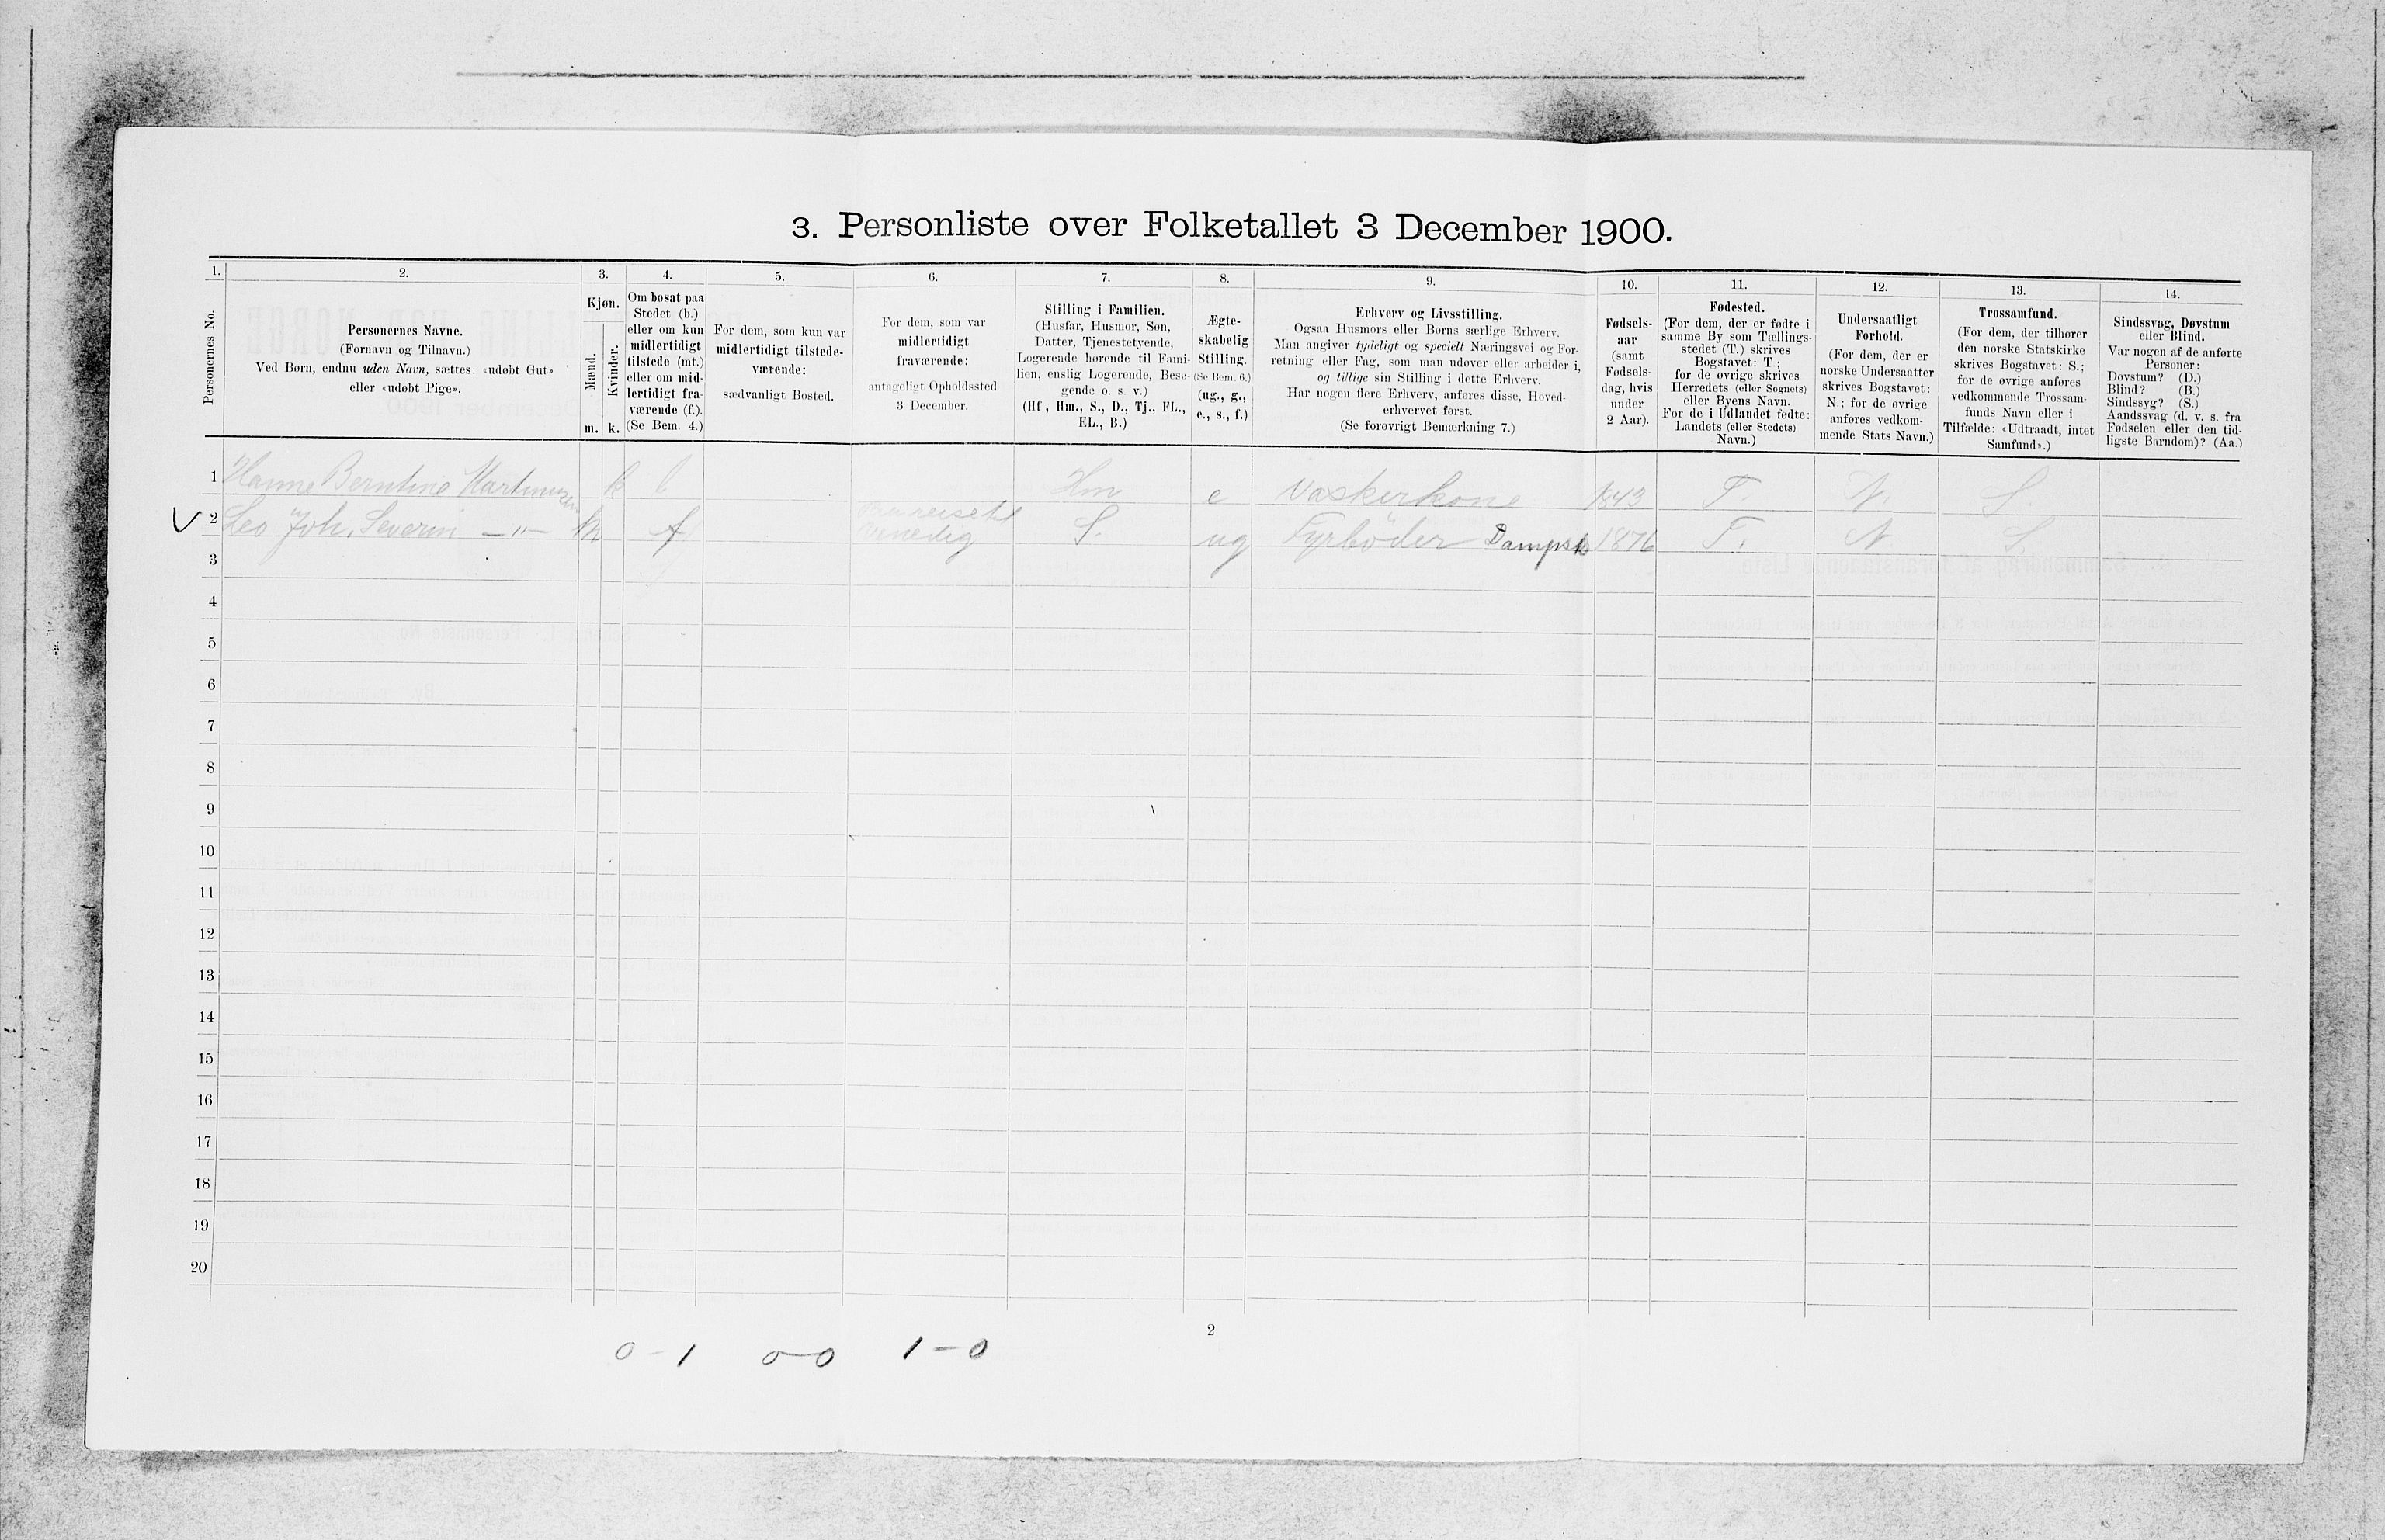 3. Personliste over Folketallet 3 December 1900.
1. 2. 3. 4. 5. 6. 7. 8. 9. 10. 11. 12. 13. 14.
Personernes No.
Personernes Navne.
(Fornavn og Tilnavn.)
Ved Børn, endnu uden Navn, sættes: «udøbt Gut»
eller «udøbt Pige».
Kjøn.
Mænd.
Kvinder.
m. k.
Om bosat paa
Stedet (b.)
eller om kun
midlertidigt
tilstede (mt.)
eller om mid-
lertidigt fra-
værende (f.).
(Se Bem. 4.)
For dem, som kun var
midlertidigt tilstede-
værende:
sædvanligt Bosted.
For dem, som var
midlertidigt
fraværende:
antageligt Opholdssted
3 December.
Stilling i Familien.
(Husfar, Husmor, Søn,
Datter, Tjenestetyende,
Logerende hørende til Fami-
lien, enslig Logerende, Besø-
gende o. s. v.)
(Hf., Hm., S., D., Tj., FL.,
EL., B.)
Ægte-
skabelig
Stilling.
(Se Bem. 6.)
(ug., g.,
e., s., f.)
Erhverv og Livsstilling.
Ogsaa Husmors eller Børns særlige Erhverv.
Man angiver tydeligt og specielt Næringsvei og For-
retning eller Fag, som man udøver eller arbeider i,
og tillige sin Stilling i dette Erhverv.
Har nogen flere Erhverv, anføres disse, Hoved-
erhvervet først.
(Se forøvrigt Bemærkning 7.)
Fødsels-
aar
(samt
Fødsels-
dag, hvis
under
2 Aar).
Fødested.
(For dem, der er fødte i
samme By som Tællings-
stedet (T.) skrives
Bogstavet: T.;
for de øvrige skrives
Herredets (eller Sognets)
eller Byens Navn.
For de i Udlandet fødte:
Landets (eller Stedets)
Navn.)
Undersaatligt
Forhold.
(For dem, der er
norske Undersaatter
skrives Bogstavet:
N.; for de øvrige
anføres vedkom-
mende Stats Navn.)
Trossamfund.
(For dem, der tilhører
den norske Statskirke
skrives Bogstavet: S.;
for de øvrige anføres
vedkommende Trossam-
funds Navn eller i
Tilfælde: «Udtraadt, intet
Samfund».)
Sindssvag, Døvstum
eller Blind.
Var nogen af de anførte
Personer:
Døvstum? (D.)
Blind? (B.)
Sindssyg? (S.)
Aandssvag (d. v. s. fra
Fødselen eller den tid-
ligste Barndom)? (Aa.)
1 Hanne Berntine Martinusen k b Hm e Vaskerkone 1843 T. N. S.
2 Leo Joh. Severin —"— m f Venedig S. ug Fyrbøder Dampsk 1876 T. N S.
3
4
5
6
7
8
9
10
11
12
13
14
15
16
17
18
19
20
2
0 - 1 0-0 1-0